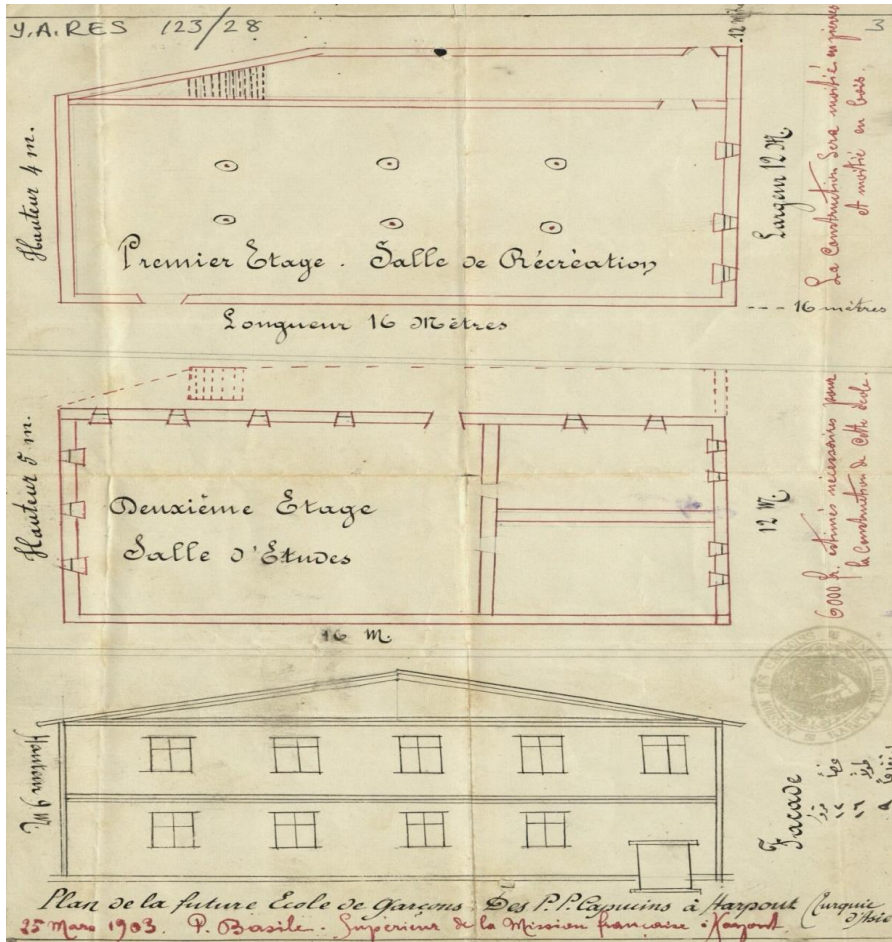 Y.A.RES 123/28
3
12 M.
Hauteur 4 m.
Premier Etage. Salle de Récréation
Largeur 12 M.
La Construction Sera moitié en pierres
et moitié en bois.
Longueur 16 Mètres
--- 16 mètres
Hauteur 5 m.
Deuxième Etage
Salle d'Etudes
12 M.
6000 fr. estimés nécessaires pour
la Construction de cette école.
16 M.
Hauteur 9 M.
Façade
Plan de la future Ecole de Garçons Des P.P. Capucins à Harpout (Turquie
d'Asie
25 Mars 1903. P. Basile. Supérieur de la Mission française à Karpout